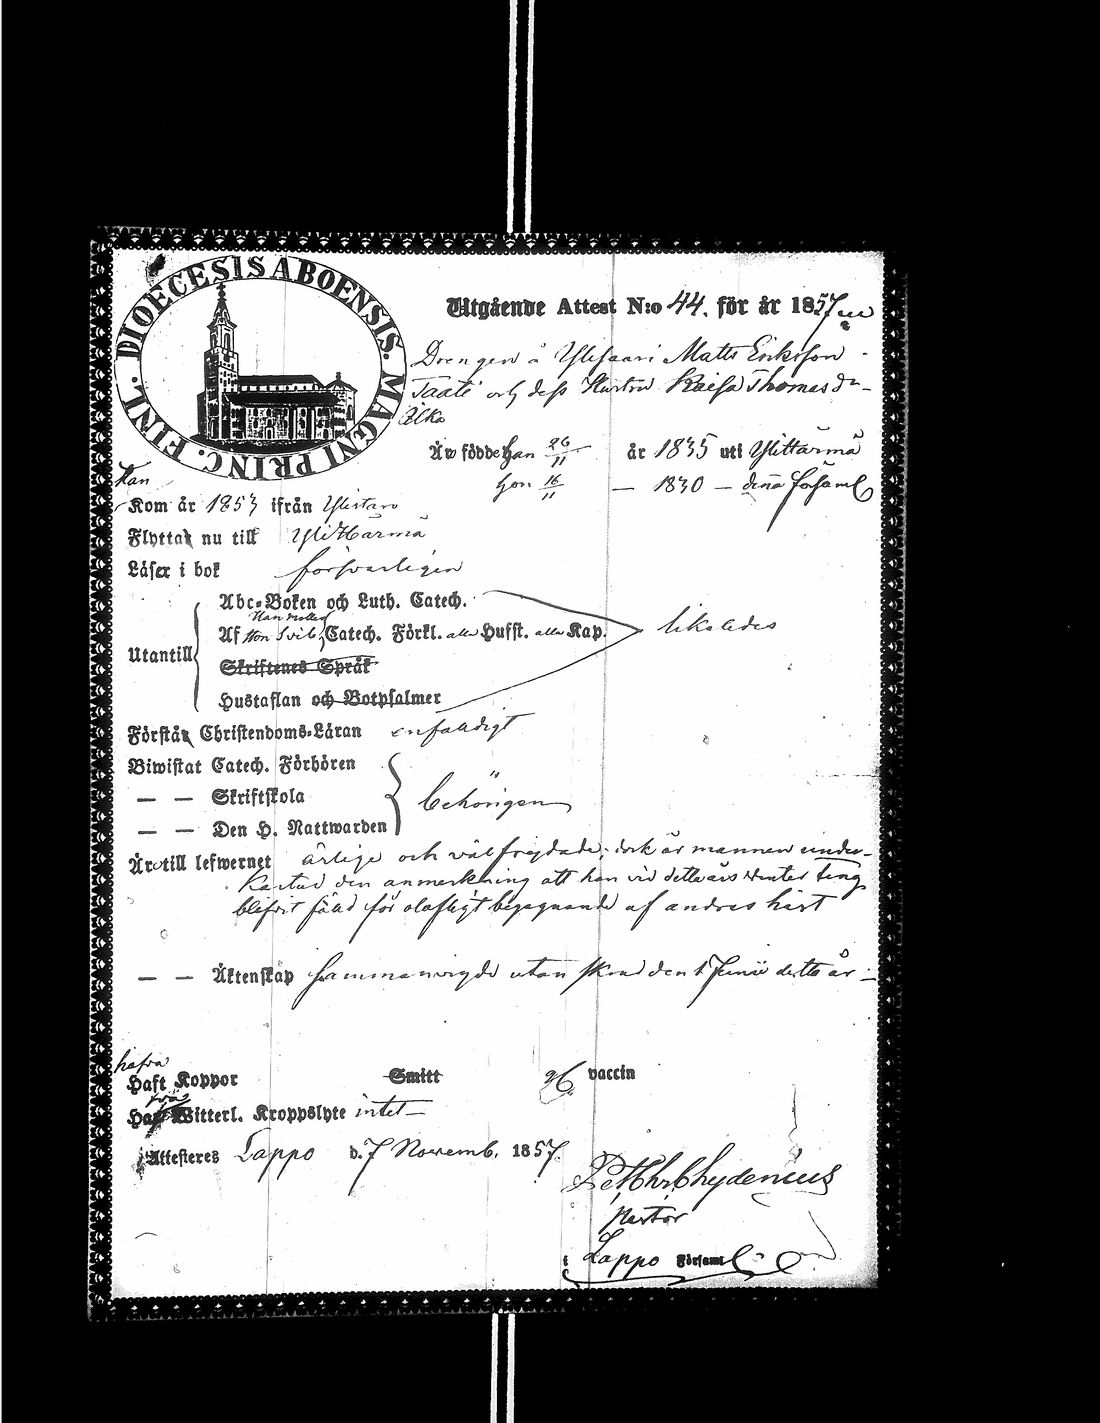 DIOECESIS ABOENSIS. MAGNI PRINC. FINL.
Utgående Attest N:o 44. för år 1857
Drengen å Ylisaari Matts Eriksson
Taati och dess Hustru Kaisa Thomasd:r
Ilko
Äro födde Han 26/11 år 1835 uti Ylihärmä
Hon 16/11 — 1830 — denna församl
Han
Kom år 1853 ifrån Ylistaro
Flytta nu till YliHärmä
Läsa i bok försvarligen
Abc-Boken och Luth. Catech.
Han
Utantill Af Hon Svib. Catech. Förkl. alla Hufst. alla Kap. likaledes
Skriftenes Språk
Hustaflan och Botpsalmer
Förstå Christendoms-Läran enfaldigt
Biwistat Catech. Förhören
— — Skriftskola behörigen
— — Den H. Nattwarden
Äro till lefwernet ärlige och välfrejdade; dock är mannen under-
kastad den anmerkning att han vid detta års vinter ting
blifvit fälld för olofligt begagnande af andras häst
— — Äktenskap sammanvigde utan skrud den 1 Junii detta år
hafva
Haft Koppor Smitt vaccin
Witterl. Kroppslyte intet —
Attesteres Lappo d. 7 Novemb. 1857.
Chydenius
Pastor
i Lappo Församl